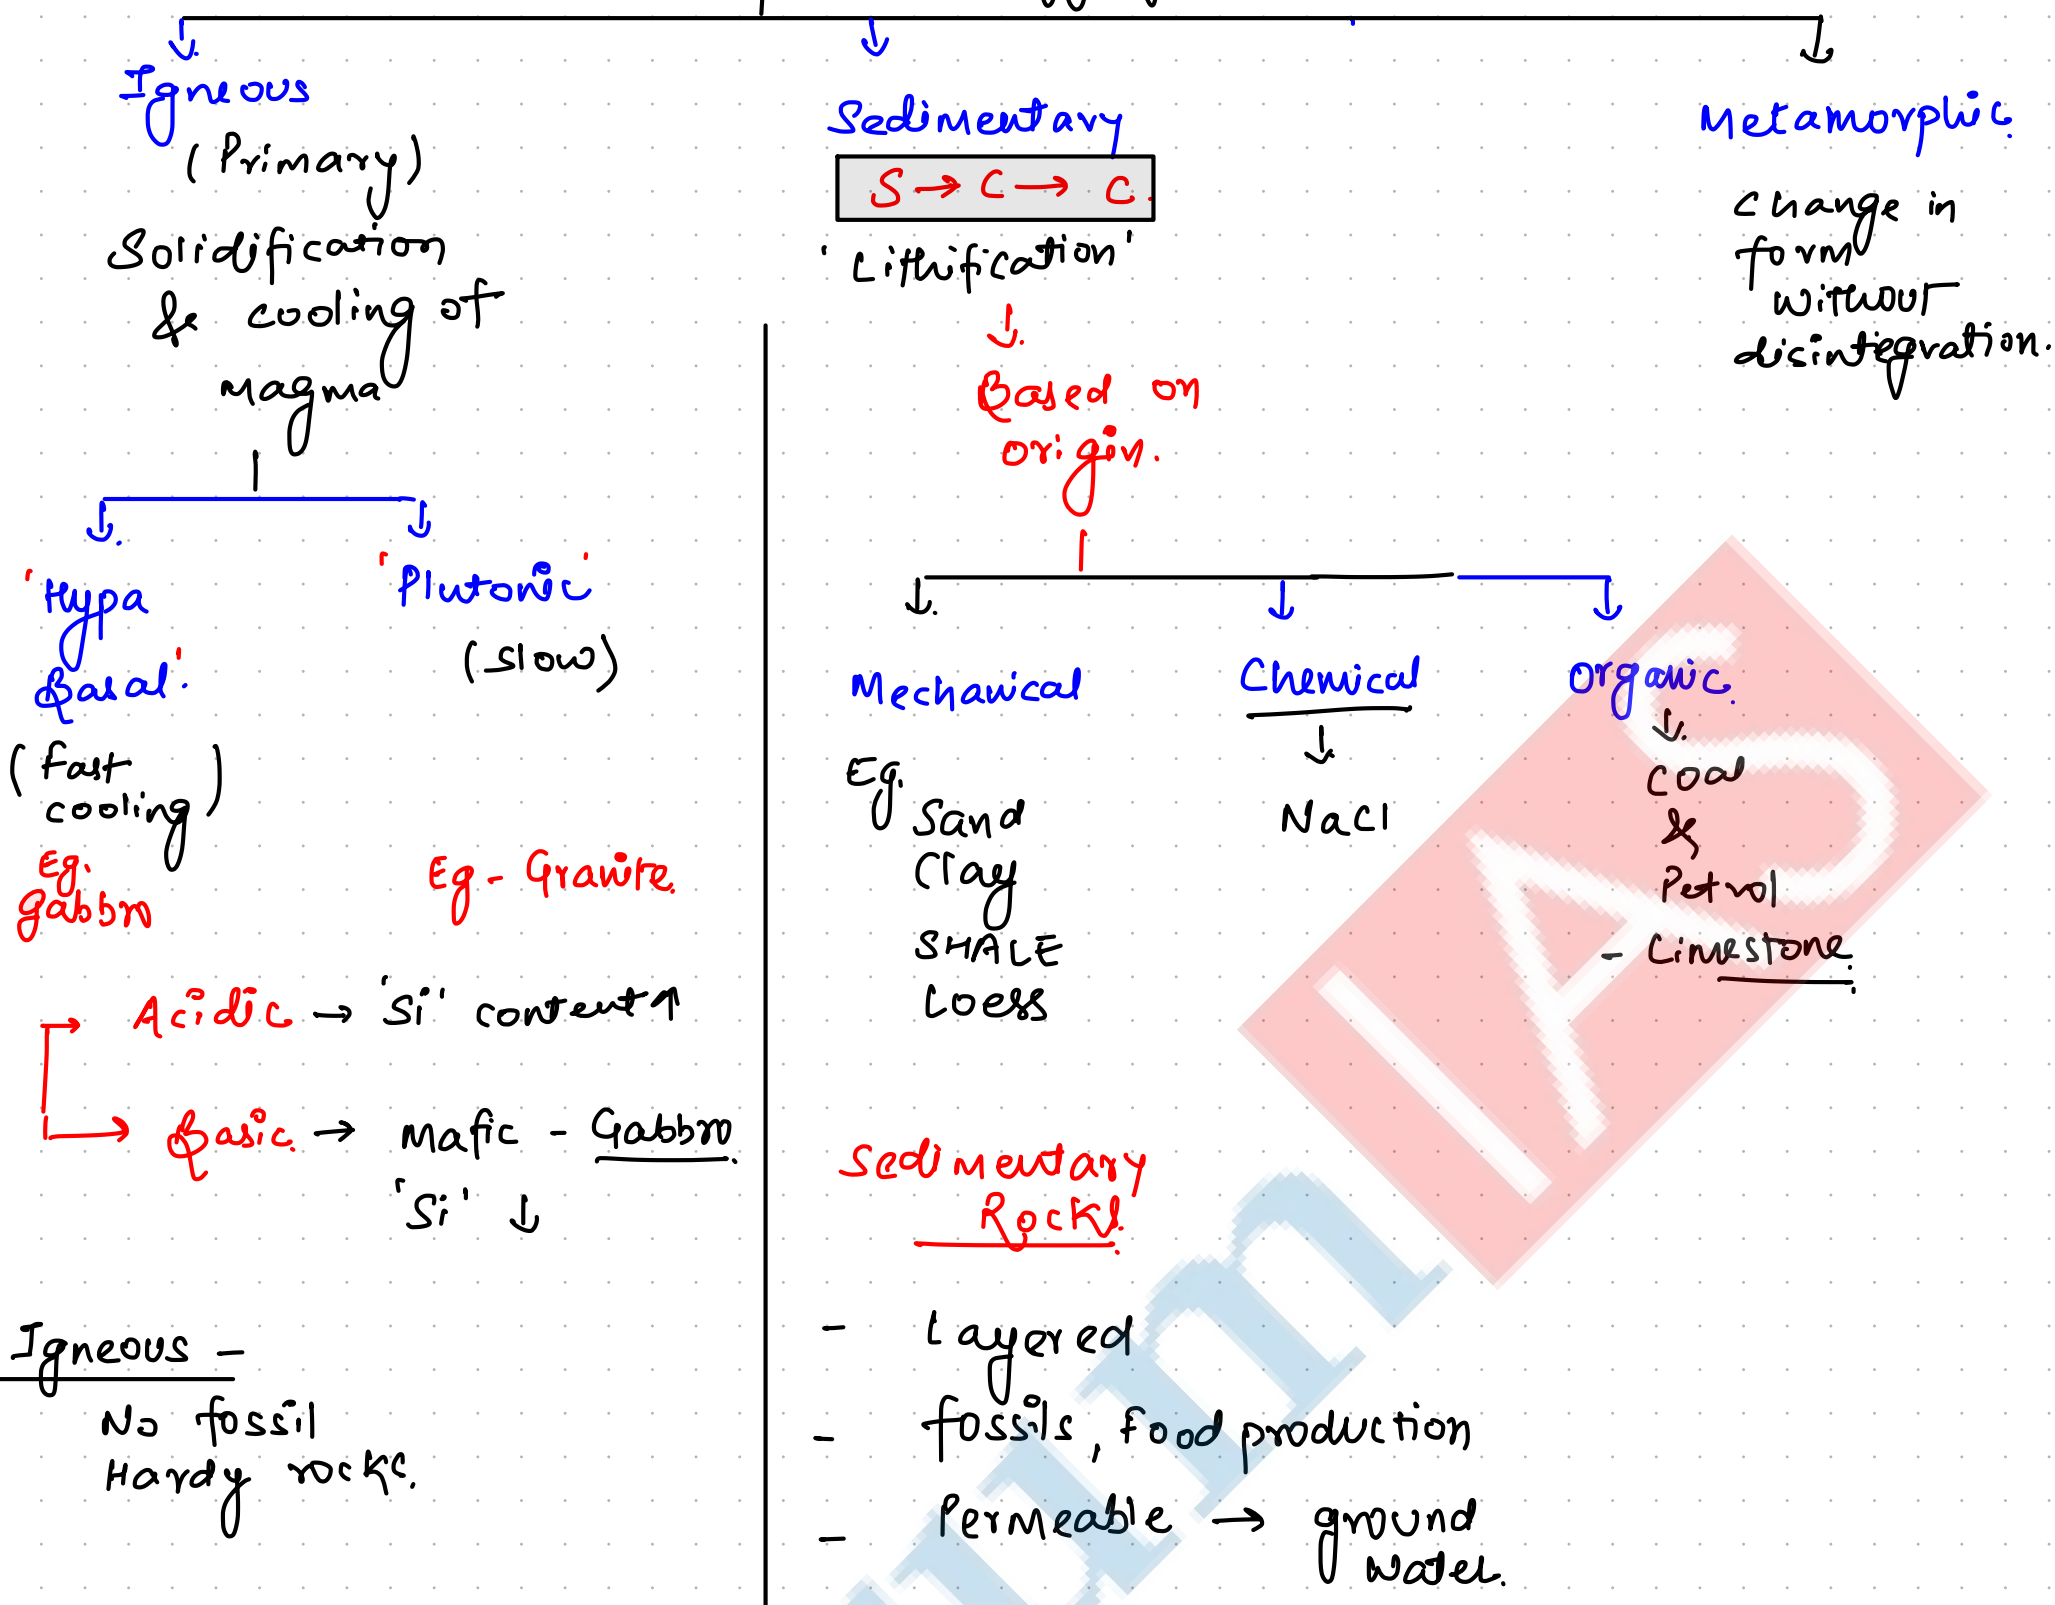 Igneous
(Primary)
Solidification
& cooling of
magma
'Hypa
Basal'
(fast
cooling)
Eg.
gabbro
'Plutonic'
(slow)
Eg - Granite.
Acidic → 'Si' content ↑
Basic → Mafic - Gabbro.
'Si' ↓
Igneous -
No fossil
Hardy rocks.
Sedimentary
S → C → C.
'Lithification'
Based on
origin.
Mechanical
Eg.
Sand
Clay
SHALE
Loess
Chemical
NaCl
Organic.
Coal
&
Petrol
- Limestone.
Sedimentary
Rocks.
- Layered
- fossils, Food production
- Permeable → ground
water.
Metamorphic.
Change in
form
without
disintegration.
um IAS